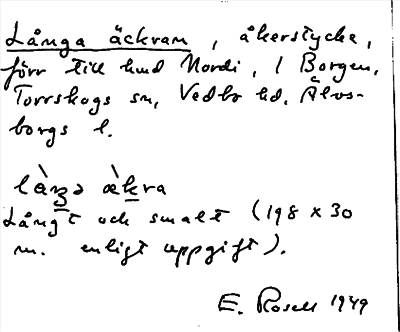 Långa äckran, åkerstycke,
förr till hmd Nordi, 1 Borgen,
Torrskogs sn, Vedbo hd, Älvs-
borgs l.
làŋgə àkra
Långt och smalt (198 x 30
m. enligt uppgift).
E. Rosell 1949